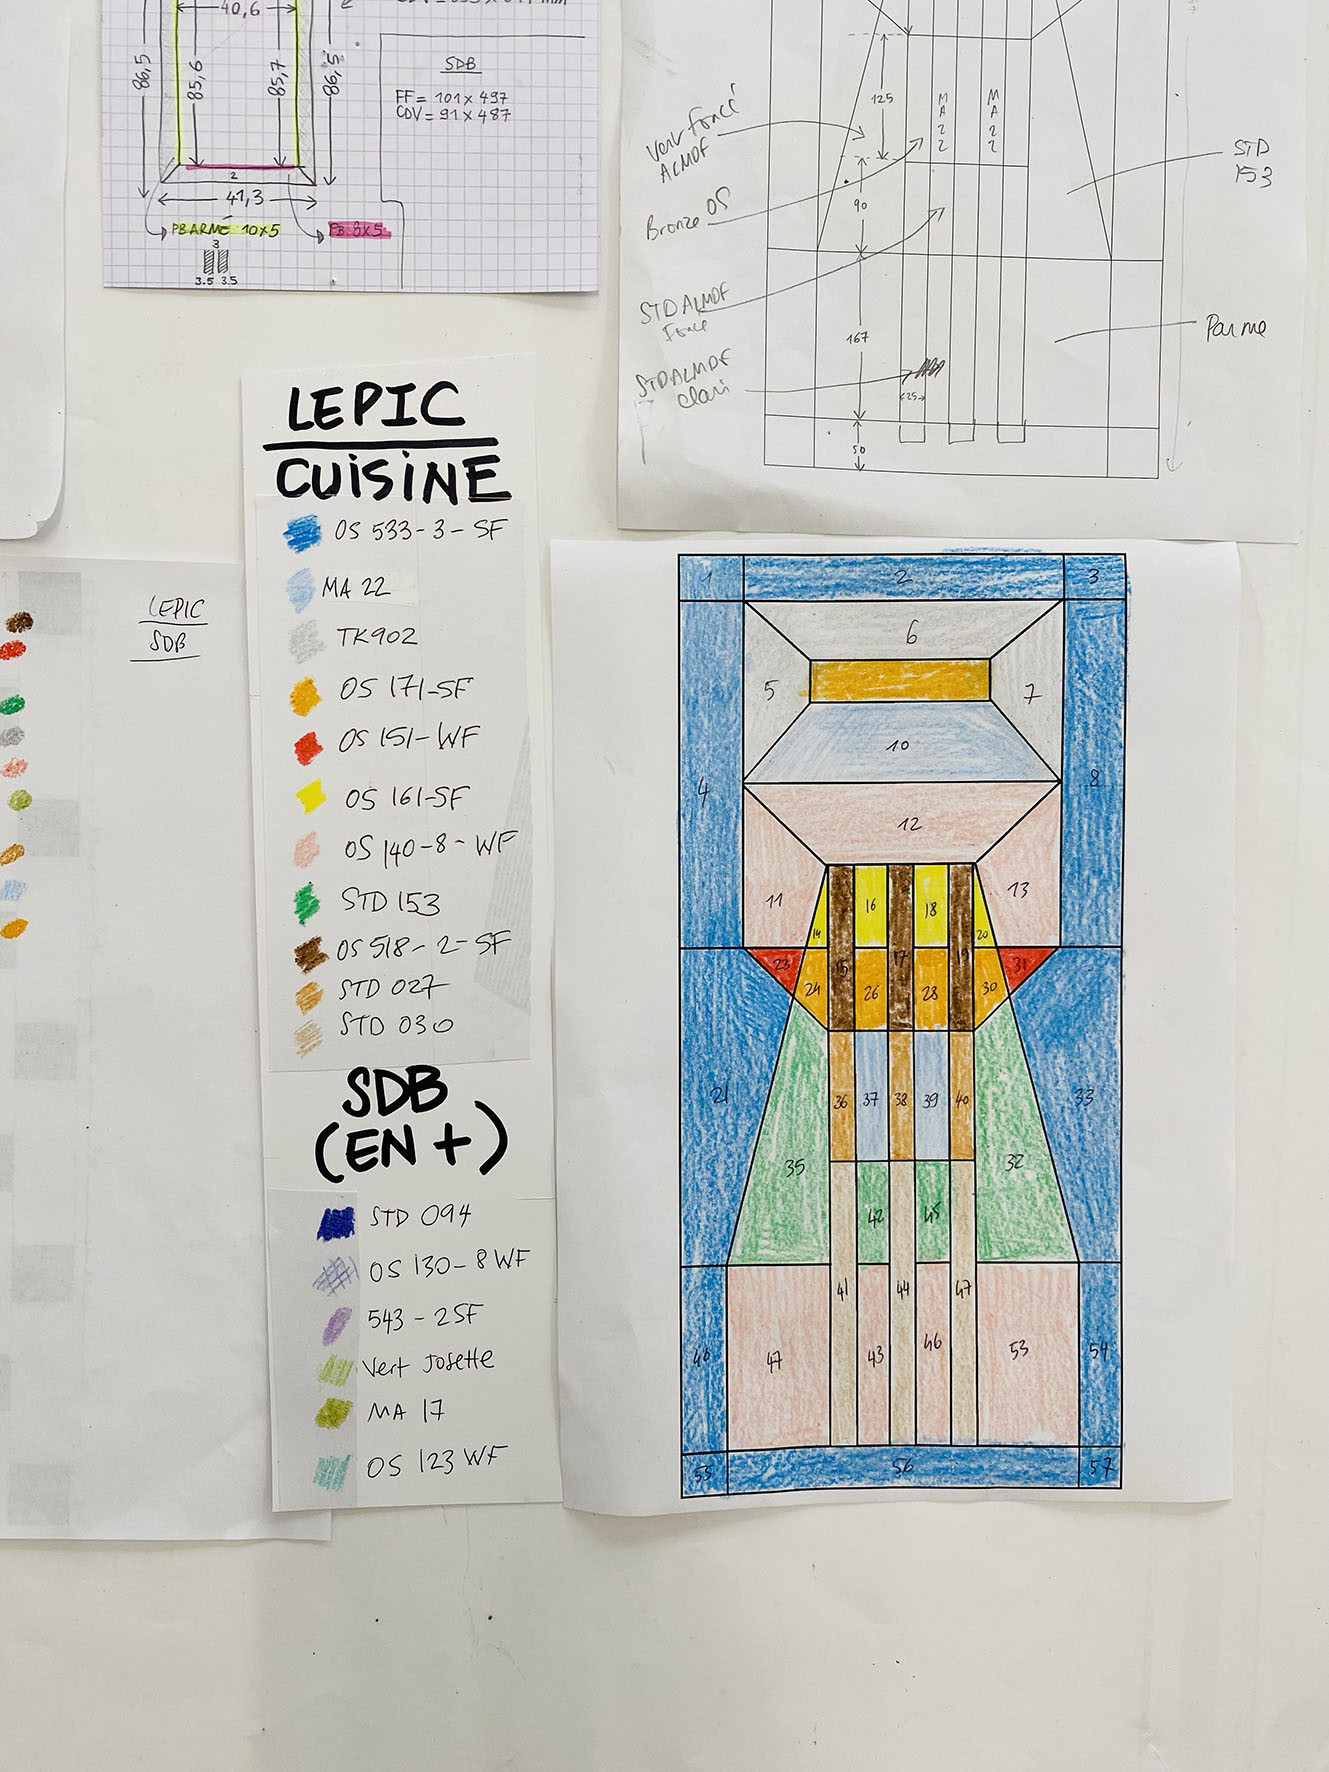 40,6
86,5
85,6
85,7
86,5
2
41,3
PB ARMÉ 10x5
PB 8x5
3
3.5 3.5
SDB
FF= 101 x 497
CDV= 91 x 487
125
MA22
MA22
Vert foncé
ALMDF
Bronze OS
90
STD
153
STD ALMDF
Foncé
167
Parme
STD ALMDF
clair
25
50
LEPIC
SDB
LEPIC
CUISINE
OS 533-3-SF
MA 22
TK902
OS 171-SF
OS 151-WF
OS 161-SF
OS 140-8-WF
STD 153
OS 518-2-SF
STD 027
STD 030
SDB
(EN +)
STD 094
OS 130-8 WF
543-2SF
Vert Josette
MA 17
OS 123 WF
1 2 3
6
5 7
10
4 8
12
11 13
16 18
14 20
15 17 19
23 31
24 26 28 30
21 36 37 38 39 40 33
35 32
42 45
41 44 47
46 47 43 46 53 54
55 56 57